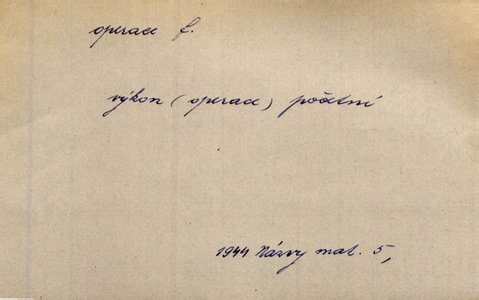 operace f.
výkon (operace) početní
1944 Názvy mat. 5,